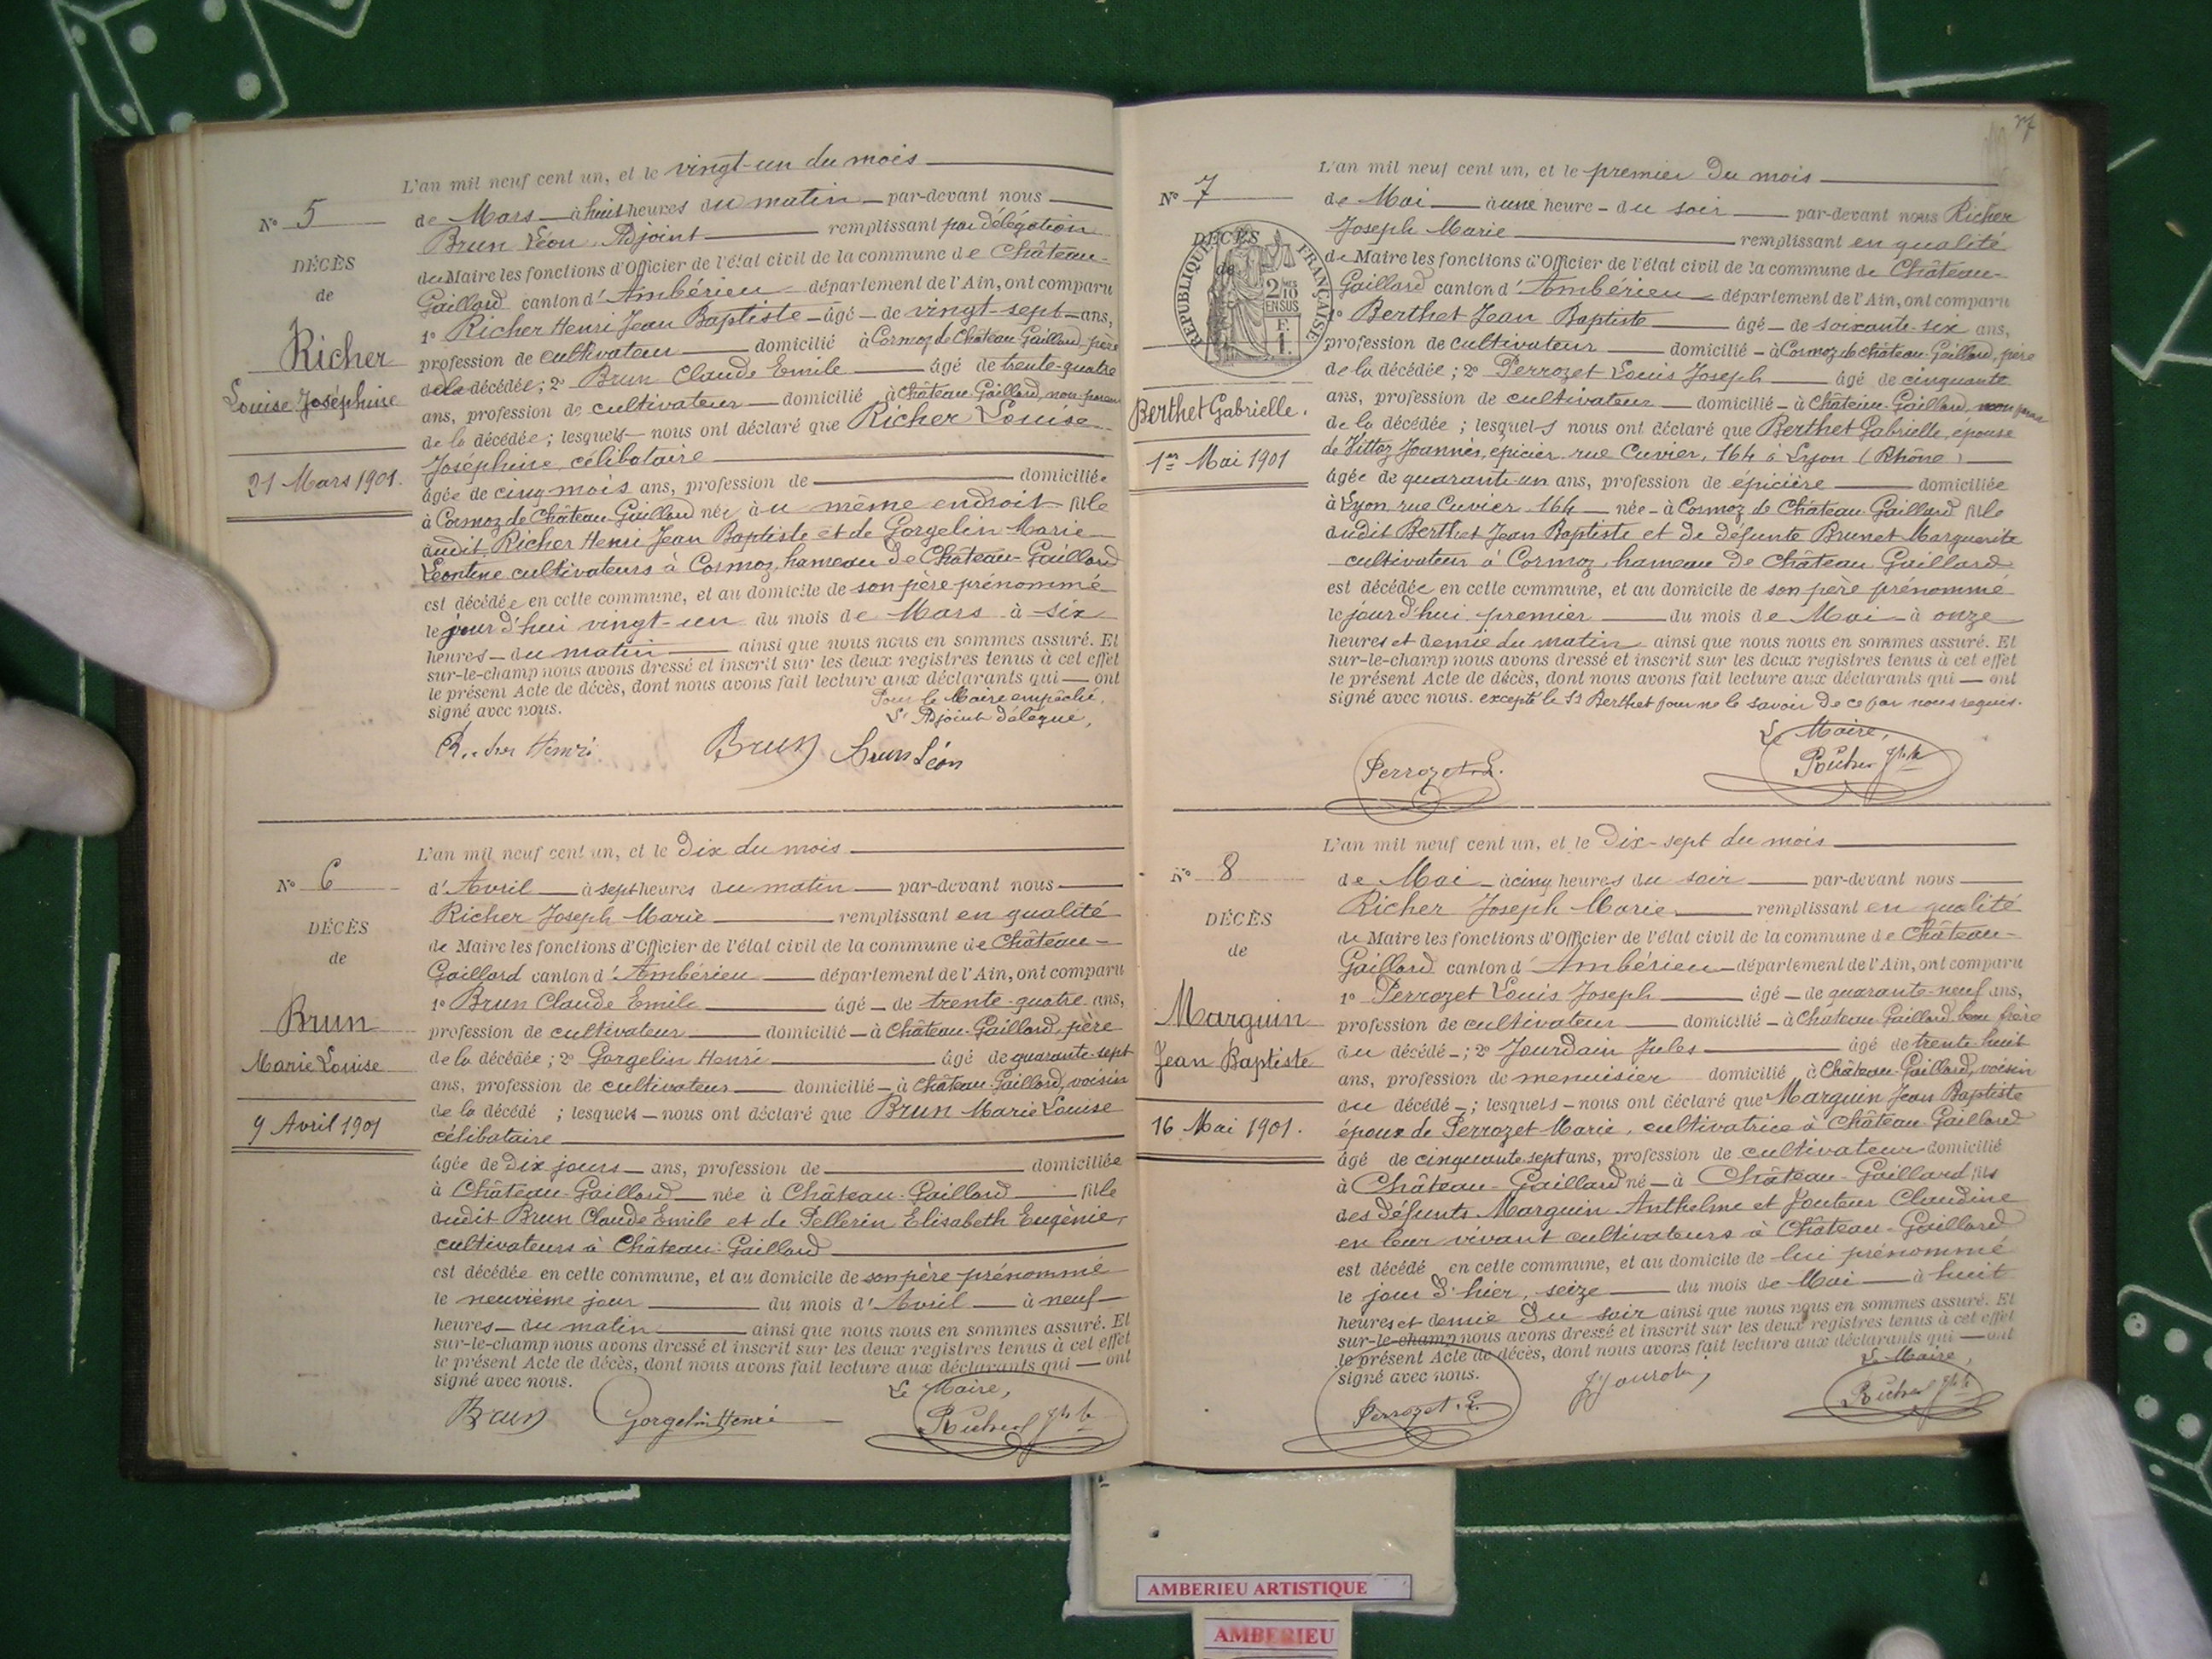 N° 5
DÉCÈS
de
Richer
Louise Joséphine
21 Mars 1901.
L'an mil neuf cent un, et le vingt-un du mois
de Mars à huit heures du matin par-devant nous
Brun Léon, Adjoint remplissant par délégation
du Maire les fonctions d'Officier de l'état civil de la commune de Château-
Gaillard canton d'Ambérieu département de l'Ain, ont comparu
1° Richer Henri Jean Baptiste âgé de vingt-sept ans,
profession de cultivateur domicilié à Cormoz de Château-Gaillard, père
de la décédée; 2° Brun Claude Emile âgé de trente-quatre
ans, profession de cultivateur domicilié à Château Gaillard, non parent
de la décédée; lesquels nous ont déclaré que Richer Louise
Joséphine, célibataire
âgée de cinq mois ans, profession de domiciliée
à Cormoz de Château-Gaillard née au même endroit fille
dudit Richer Henri Jean Baptiste et de Gorgelin Marie
Léontine cultivateurs à Cormoz, hameau de Château-Gaillard
est décédée en cette commune, et au domicile de son père prénommé
le jour d'hui vingt-un du mois de Mars à six
heures du matin ainsi que nous nous en sommes assuré. Et
sur-le-champ nous avons dressé et inscrit sur les deux registres tenus à cet effet
le présent Acte de décès, dont nous avons fait lecture aux déclarants qui ont
signé avec nous.
Pour le Maire empêché,
L'Adjoint délégué,
Richer Henri Brun Brun Léon
N° 6
DÉCÈS
de
Brun
Marie Louise
9 Avril 1901
L'an mil neuf cent un, et le Dix du mois
d'Avril à sept heures du matin par-devant nous
Richer Joseph Marie remplissant en qualité
de Maire les fonctions d'Officier de l'état civil de la commune de Château-
Gaillard canton d'Ambérieu département de l'Ain, ont comparu
1° Brun Claude Emile âgé de trente-quatre ans,
profession de cultivateur domicilié à Château-Gaillard, père
de la décédée; 2° Gorgelin Henri âgé de quarante-sept
ans, profession de cultivateur domicilié à Château-Gaillard, voisin
de la décédé ; lesquels nous ont déclaré que Brun Marie Louise
célibataire
âgée de Dix jours ans, profession de domiciliée
à Château-Gaillard née à Château-Gaillard fille
dudit Brun Claude Emile et de Pellerin Elisabeth Eugènie,
cultivateurs à Château-Gaillard
est décédée en cette commune, et au domicile de son père prénommé
le neuvième jour du mois d'Avril à neuf
heures du matin ainsi que nous nous en sommes assuré. Et
sur-le-champ nous avons dressé et inscrit sur les deux registres tenus à cet effet
le présent Acte de décès, dont nous avons fait lecture aux déclarants qui ont
signé avec nous.
Le Maire,
Brun Gorgelin Henri Richer Jph
N° 7
DÉCÈS
de
RÉPUBLIQUE FRANÇAISE
2/10 EN SUS
Berthet Gabrielle.
1er Mai 1901
L'an mil neuf cent un, et le premier du mois
de Mai à une heure du soir par-devant nous Richer
Joseph Marie remplissant en qualité
de Maire les fonctions d'Officier de l'état civil de la commune de Château-
Gaillard canton d'Ambérieu département de l'Ain, ont comparu
1° Berthet Jean Baptiste âgé de soixante-six ans,
profession de cultivateur domicilié à Cormoz de Château-Gaillard, père
de la décédée; 2° Perrozet Louis Joseph âgé de cinquante
ans, profession de cultivateur domicilié à Château-Gaillard, non parent
de la décédée ; lesquels nous ont déclaré que Berthet Gabrielle, épouse
de Vittoz Joannès, épicier rue Cuvier, 164 à Lyon (Rhône)
âgée de quarante-un ans, profession de épicière domiciliée
à Lyon rue Cuvier 164 née à Cormoz de Château-Gaillard fille
dudit Berthet Jean Baptiste et de défunte Brunet Marguerite
cultivateur à Cormoz, hameau de Château Gaillard
est décédée en cette commune, et au domicile de son père prénommé
le jour d'hui premier du mois de Mai à onze
heures et demie du matin ainsi que nous nous en sommes assuré. Et
sur-le-champ nous avons dressé et inscrit sur les deux registres tenus à cet effet
le présent Acte de décès, dont nous avons fait lecture aux déclarants qui ont
signé avec nous. excepté le Sr Berthet pour ne le savoir de ce par nous requis.
Le Maire,
Perrozet L. Richer Jph
N° 8
DÉCÈS
de
Marguin
Jean Baptiste
16 Mai 1901.
L'an mil neuf cent un, et le Dix-sept du mois
de Mai à cinq heures du soir par-devant nous
Richer Joseph Marie remplissant en qualité
de Maire les fonctions d'Officier de l'état civil de la commune de Château-
Gaillard canton d'Ambérieu département de l'Ain, ont comparu
1° Perrozet Louis Joseph âgé de quarante-neuf ans,
profession de cultivateur domicilié à Château Gaillard beau frère
du décédé ; 2° Jourdain Jules âgé de trente-huit
ans, profession de menuisier domicilié à Château-Gaillard, voisin
du décédé ; lesquels nous ont déclaré que Marguin Jean Baptiste
époux de Perrozet Marie, cultivatrice à Château Gaillard
âgé de cinquante sept ans, profession de cultivateur domicilié
à Château-Gaillard né à Château-Gaillard fils
des défunts Marguin Anthelme et Jouteur Claudine
en leur vivant cultivateurs à Château-Gaillard
est décédé en cette commune, et au domicile de lui prénommé
le jour d'hier, seize du mois de Mai à huit
heures et demie du soir ainsi que nous nous en sommes assuré. Et
sur-le-champ nous avons dressé et inscrit sur les deux registres tenus à cet effet
le présent Acte de décès, dont nous avons fait lecture aux déclarants qui ont
signé avec nous.
Le Maire,
Perrozet L. Richer Jph
AMBERIEU ARTISTIQUE
AMBERIEU